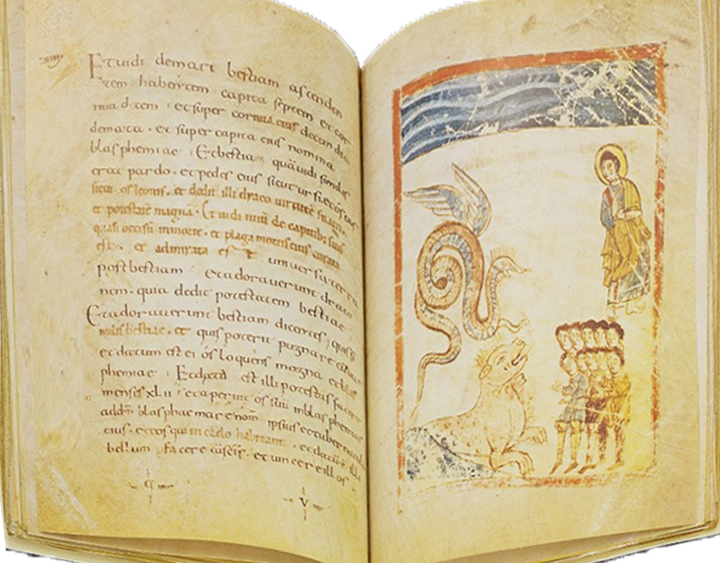 Et uidi demari bestiam ascenden
tem habentem capita septem et cor
nua decem · et super cornua eius decem dia
demata · et super capita eius nomina
blasphemiae · Et bestiam quā uidi similis
erat pardo · et pedes eius sicut ursi et os eius
sicut os leonis · et dedit illi draco uirtutē suam
et potestatē magnā · Et uidi unū de capitibus suis
quasi occisū in morte · et plaga mortis eius curata
est · et admirata est uniuersa terra
post bestiam · et adorauerunt draco
nem · quia dedit potestatem bestiae
Et adorauerunt bestiam dicentes quis si
milis bestiae · et quis poterit pugnare cum ea
et datum est ei os loquens magna et blas
phemiae · Et data est illi potestas facere
menses xl ii · et aperuit os suū in blasphemias
ad dm̄ blasphemare nom̄ ipsius et tabernaculū
eius · et eos qui in caelo habitant · et datū ē illi
bellum facere cū sc̄is · et uincere illos
V